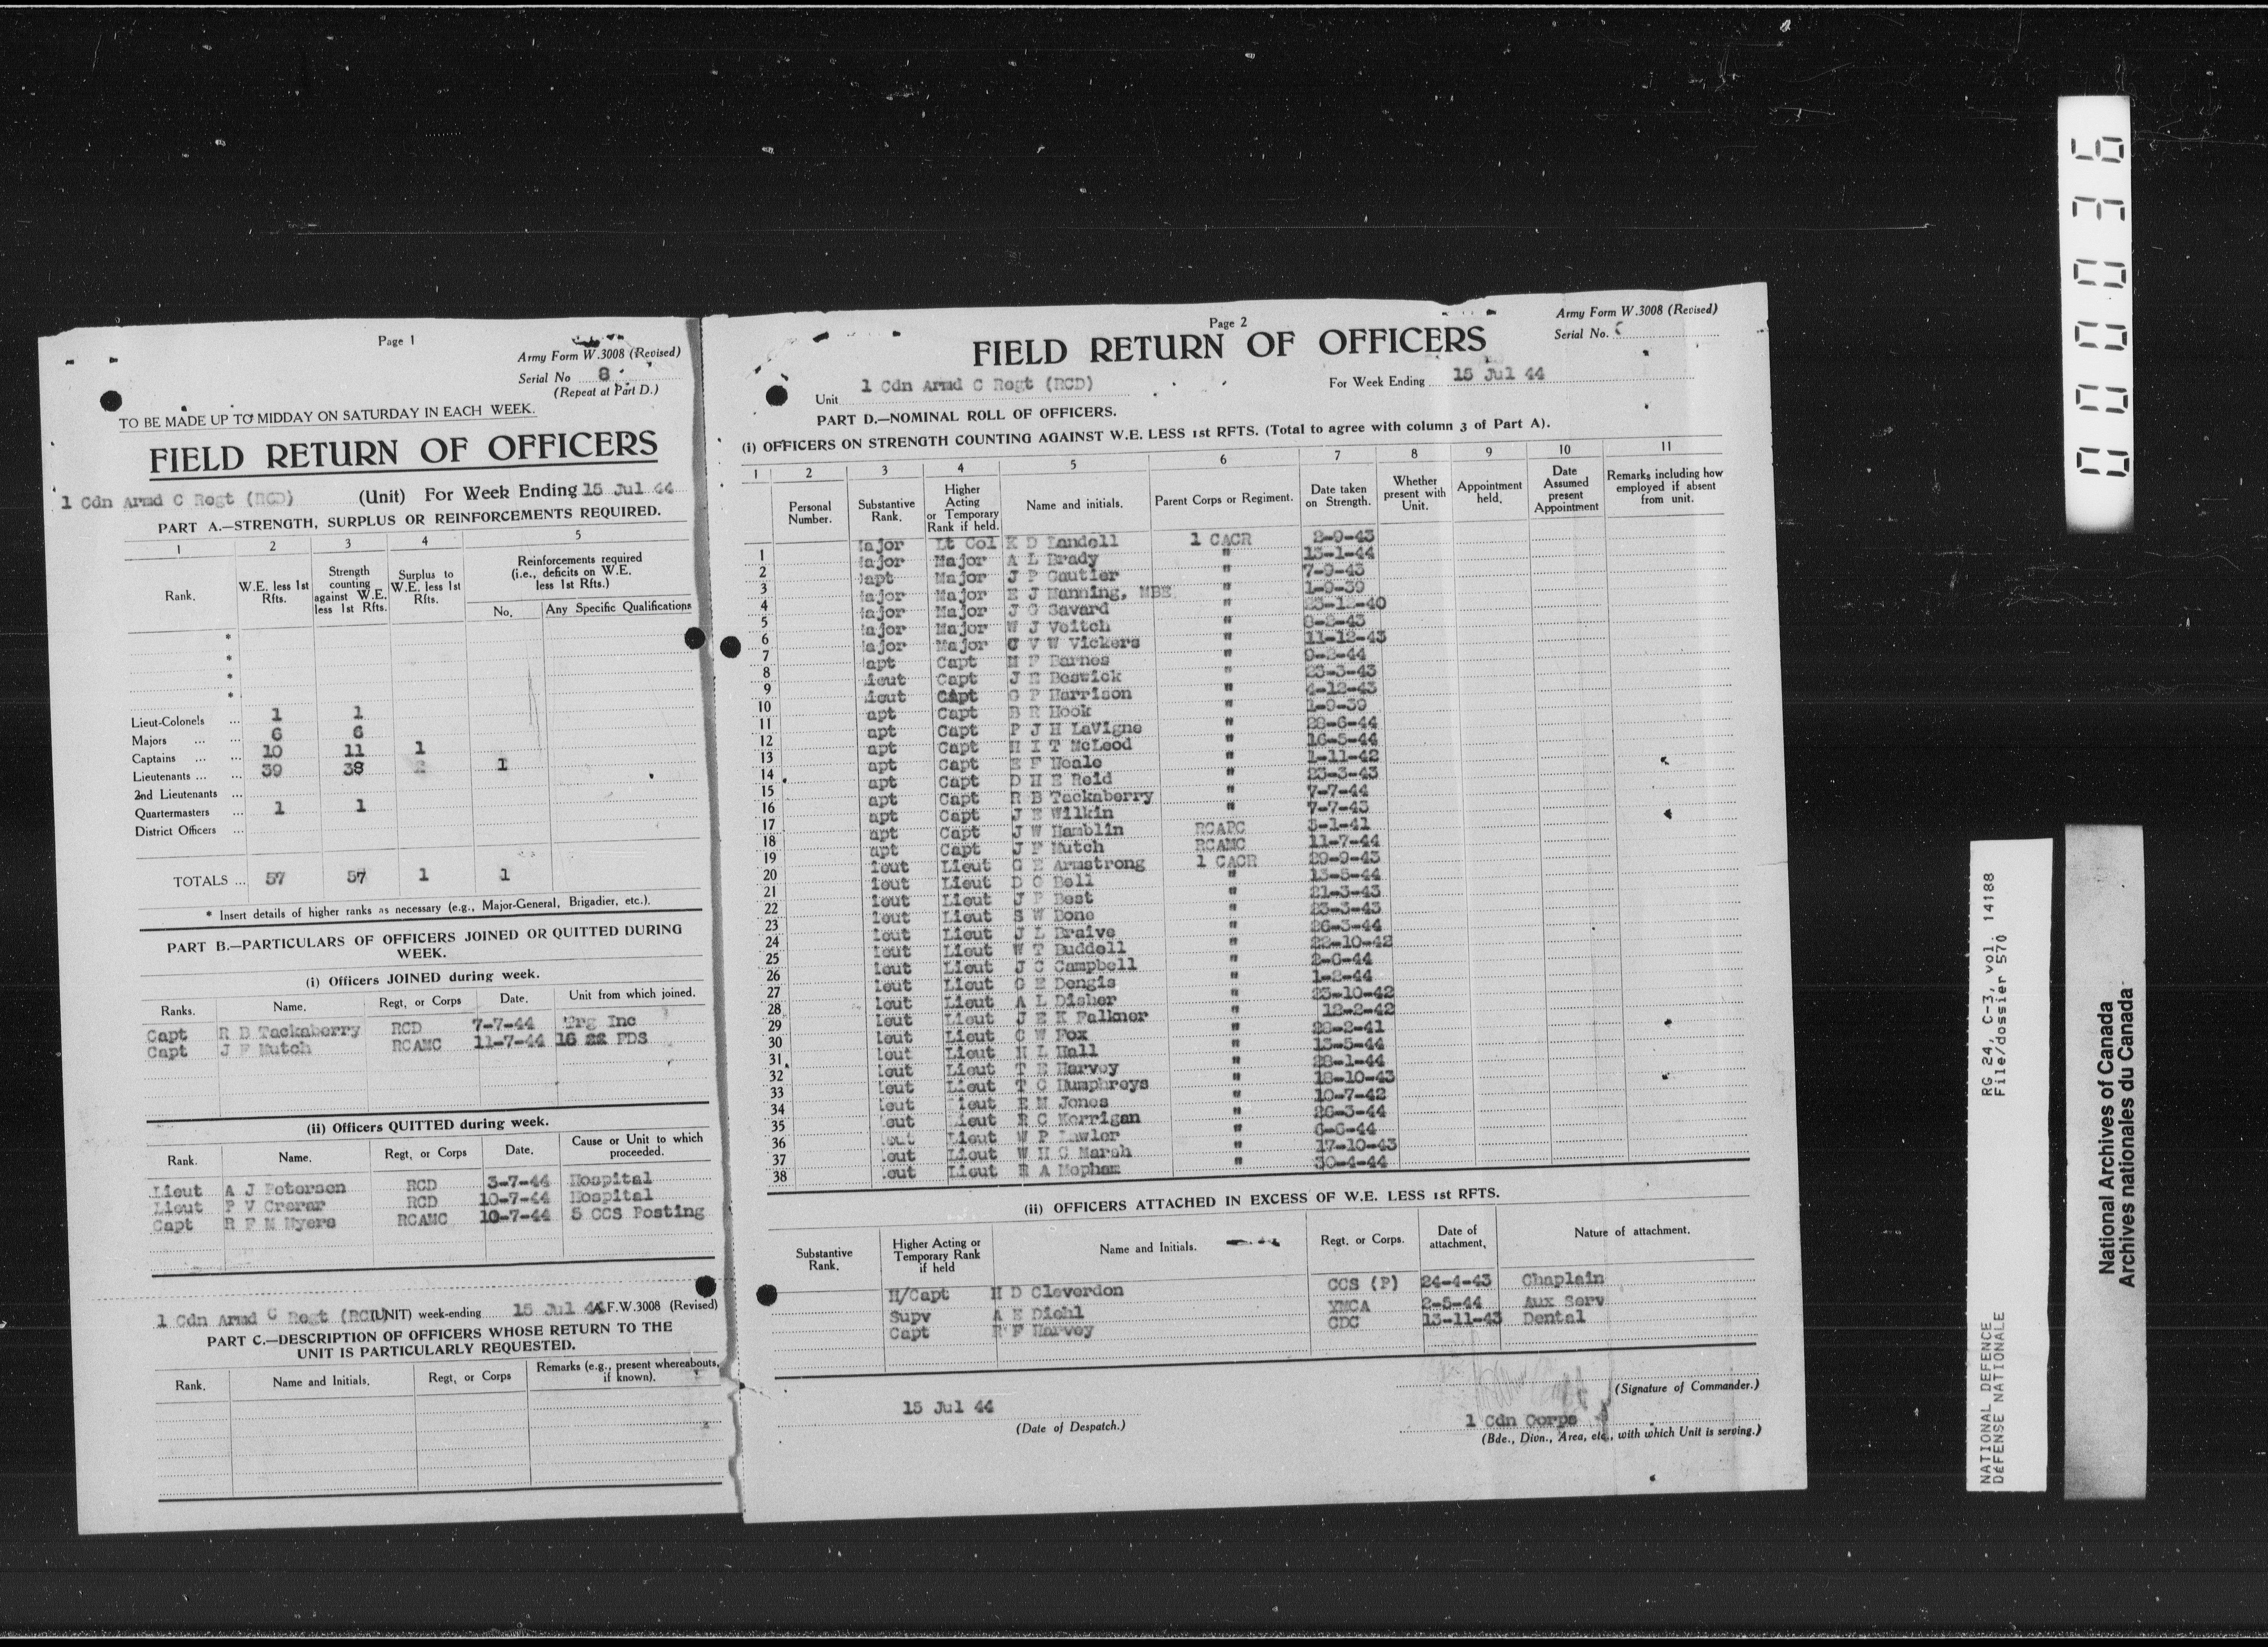 Page 1
Army Form W.3008 (Revised)
Serial No 8
(Repeat at Part D.)
TO BE MADE UP TO MIDDAY ON SATURDAY IN EACH WEEK.
FIELD RETURN OF OFFICERS
1 Cdn Armd C Regt (RCD) (Unit) For Week Ending 15 Jul 44
PART A.—STRENGTH, SURPLUS OR REINFORCEMENTS REQUIRED.
1 2 3 4 5
Rank. W.E. less 1st Rfts. Strength counting against W.E. less 1st Rfts. Surplus to W.E. less 1st Rfts. Reinforcements required (i.e., deficits on W.E. less 1st Rfts.)
No. Any Specific Qualifications
*
*
*
*
Lieut-Colonels ... 1 1
Majors ... ... 6 6
Captains ... ... 10 11 1
Lieutenants ... ... 39 38 1
2nd Lieutenants ...
Quartermasters ... 1 1
District Officers ...
TOTALS ... 57 57 1 1
* Insert details of higher ranks as necessary (e.g., Major-General, Brigadier, etc.).
PART B.—PARTICULARS OF OFFICERS JOINED OR QUITTED DURING
WEEK.
(i) Officers JOINED during week.
Ranks. Name. Regt, or Corps Date. Unit from which joined.
Capt R B Tackaberry RCD 7-7-44 Trg Inc
Capt J F Mutch RCAMC 11-7-44 16 FDS
(ii) Officers QUITTED during week.
Rank. Name. Regt, or Corps Date. Cause or Unit to which proceeded.
Lieut A J Petersen RCD 3-7-44 Hospital
Lieut P V Crerar RCD 10-7-44 Hospital
Capt R F M Myers RCAMC 10-7-44 5 CCS Posting
1 Cdn Armd C Regt (RCD) (UNIT) week-ending 15 Jul 44 A.F.W.3008 (Revised)
PART C.—DESCRIPTION OF OFFICERS WHOSE RETURN TO THE
UNIT IS PARTICULARLY REQUESTED.
Rank. Name and Initials. Regt, or Corps Remarks (e.g., present whereabouts, if known).
Page 2
Army Form W.3008 (Revised)
Serial No.
FIELD RETURN OF OFFICERS
Unit 1 Cdn Armd C Regt (RCD) For Week Ending 15 Jul 44
PART D.—NOMINAL ROLL OF OFFICERS.
(i) OFFICERS ON STRENGTH COUNTING AGAINST W.E. LESS 1st RFTS. (Total to agree with column 3 of Part A).
1 2 3 4 5 6 7 8 9 10 11
Personal Number. Substantive Rank. Higher Acting or Temporary Rank if held. Name and initials. Parent Corps or Regiment. Date taken on Strength. Whether present with Unit. Appointment held. Date Assumed present Appointment Remarks including how employed if absent from unit.
1 Major Lt Col K D Landell 1 CACR 2-9-43
2 Major Major A L Brady " 13-1-44
3 Capt Major J P Gautier " 7-9-43
4 Major Major E J Manning, MBE " 1-9-39
5 Major Major J G Savard " 23-12-40
6 Major Major W J Veitch " 8-2-43
7 Major Major C V W Vickers " 11-12-43
8 apt Capt M F Barnes " 9-2-44
9 ieut Capt J E Beswick " 23-3-43
10 ieut Capt G P Harrison " 4-12-43
11 apt Capt B R Hook " 1-9-39
12 apt Capt P J H LaVigne " 28-6-44
13 apt Capt H I T McLeod " 16-5-44
14 apt Capt E F Neale " 1-11-42
15 apt Capt D H E Reid " 23-3-43
16 apt Capt R B Tackaberry " 7-7-44
17 apt Capt J E Wilkin " 7-7-43
18 apt Capt J W Hamblin RCAPC 3-1-41
19 apt Capt J F Mutch RCAMC 11-7-44
20 ieut Lieut G E Armstrong 1 CACR 29-9-43
21 ieut Lieut D G Bell " 13-5-44
22 ieut Lieut J P Best " 21-3-43
23 ieut Lieut S W Bone " 23-3-43
24 ieut Lieut J L Braive " 26-3-44
25 ieut Lieut W T Buddell " 22-10-42
26 ieut Lieut J C Campbell " 2-6-44
27 ieut Lieut G E Dengis " 1-2-44
28 ieut Lieut A L Disher " 23-10-42
29 ieut Lieut J E K Falkner " 12-2-42
30 ieut Lieut C W Fox " 28-2-41
31 ieut Lieut H L Hall " 13-5-44
32 ieut Lieut T E Harvey " 28-1-44
33 ieut Lieut T C Humphreys " 18-10-43
34 ieut ieut E M Jones " 10-7-42
35 eut ieut R C Kerrigan " 26-3-44
36 Lieut W P Lawler " 6-6-44
37 eut Lieut W H C Marsh " 17-10-43
38 eut Lieut R A Mepham " 30-4-44
(ii) OFFICERS ATTACHED IN EXCESS OF W.E. LESS 1st RFTS.
Substantive Rank. Higher Acting or Temporary Rank if held Name and Initials. Regt. or Corps. Date of attachment. Nature of attachment.
H/Capt H D Cleverdon CCS (P) 24-4-43 Chaplain
Supv A E Diehl YMCA 2-5-44 Aux Serv
Capt R F Harvey CDC 13-11-43 Dental
(Signature of Commander.)
15 Jul 44
(Date of Despatch.)
1 Cdn Corps
(Bde., Divn., Area, etc., with which Unit is serving.)
00036
NATIONAL DEFENCE RG 24, C-3, vol. 14188
DÉFENSE NATIONALE File/dossier 570
National Archives of Canada
Archives nationales du Canada